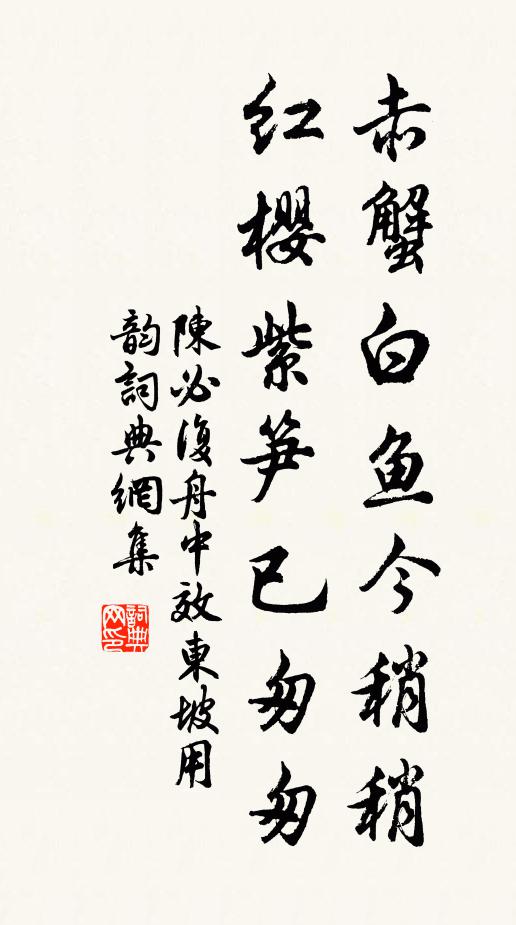 赤蟹白鱼今稍稍
红樱紫笋已匆匆
陳必復舟中效東坡用
韵詞典網集
詞典网印